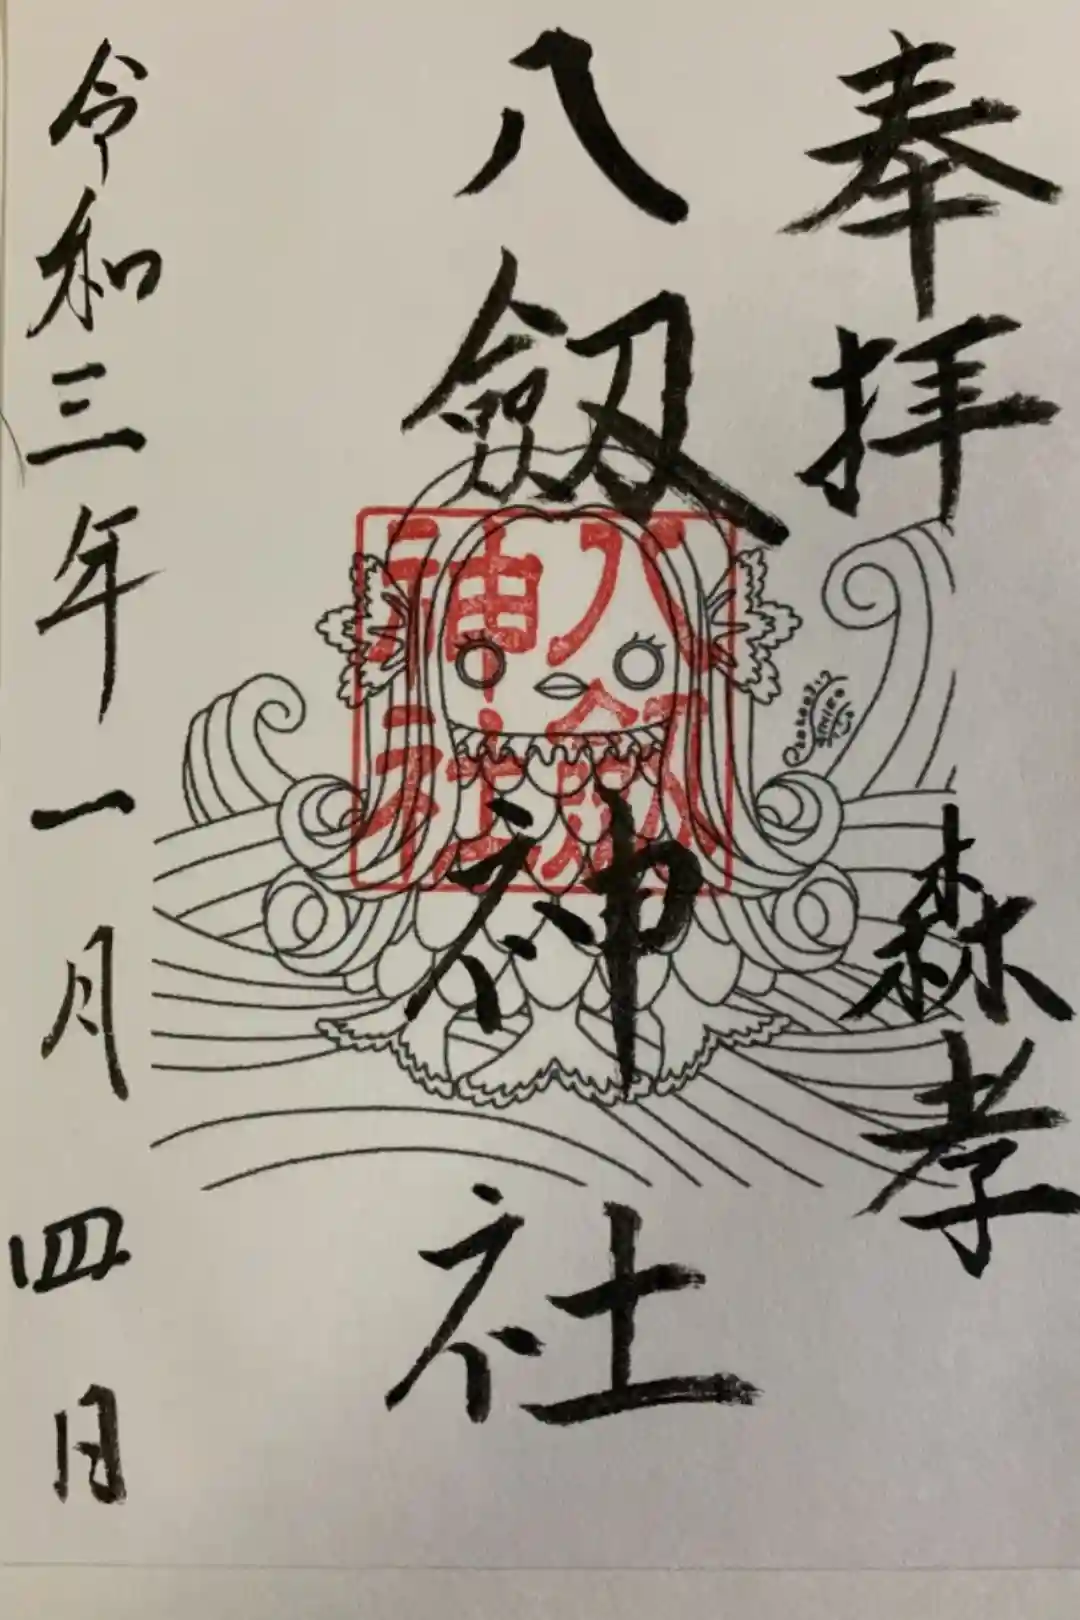 奉拝
森孝
八劔神社
八劔
神社
令和三年一月四日